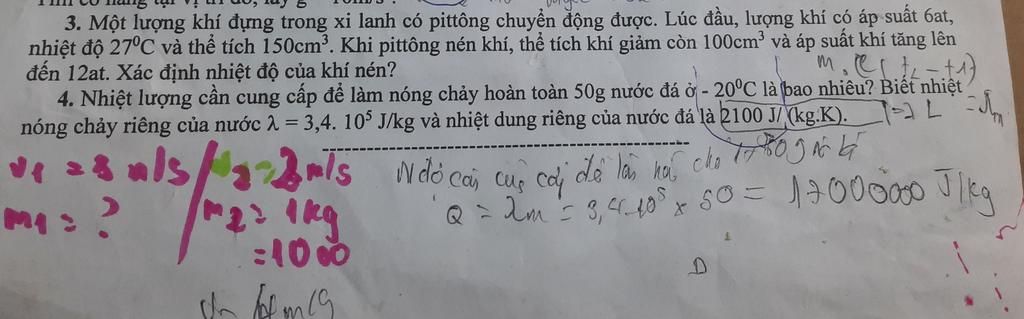 3. Một lượng khí đựng trong xi lanh có pittông chuyển động được. Lúc đầu, lượng khí có áp suất 6at,
nhiệt độ 27⁰C và thể tích 150cm³. Khi pittông nén khí, thể tích khí giảm còn 100cm³ và áp suất khí tăng lên
đến 12at. Xác định nhiệt độ của khí nén?
4. Nhiệt lượng cần cung cấp để làm nóng chảy hoàn toàn 50g nước đá ở - 20⁰C là bao nhiêu? Biết nhiệt
nóng chảy riêng của nước λ = 3,4. 10⁵ J/kg và nhiệt dung riêng của nước đá là 2100 J/ (kg.K).
m/s
m/s
m1 = ?
m2 = 1kg
= 1000
Q = λm = 3,4.10⁵ x 50 = 17000000 J/kg
D